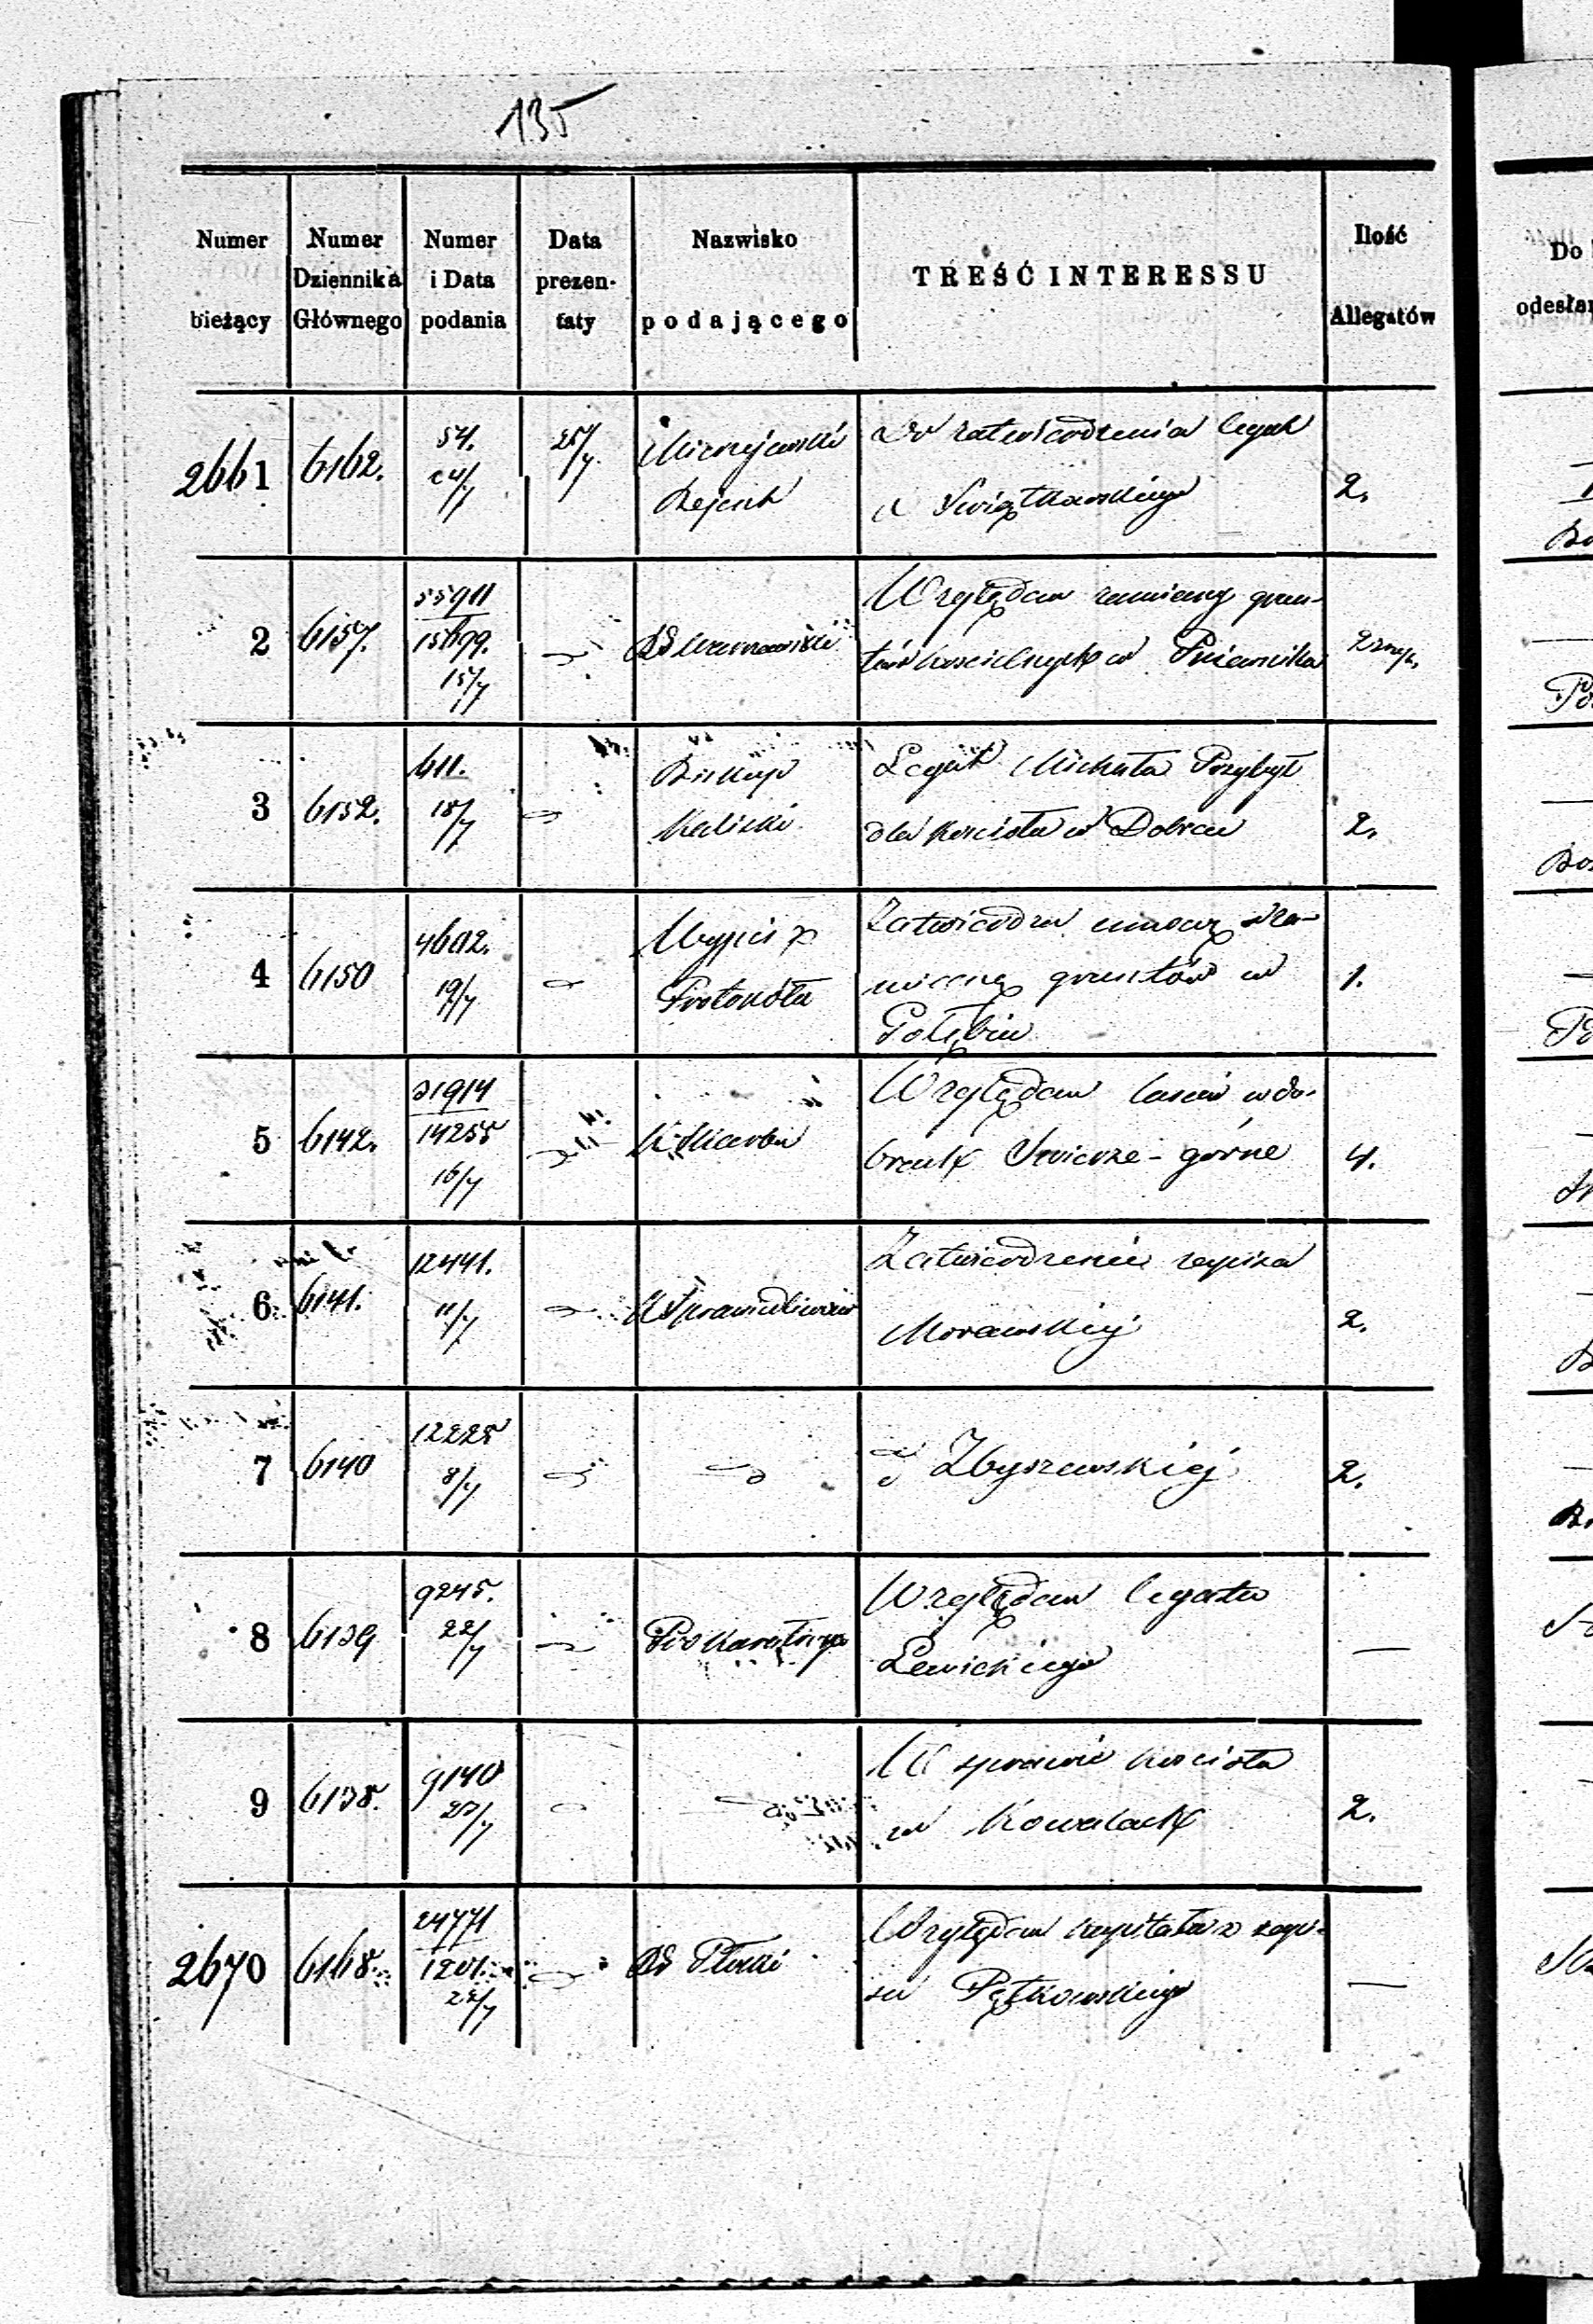 135
Numer bieżący
Numer Dziennika Głównego
Numer i Data podania
Data prezen-taty
Nazwisko podającego
TREŚĆ INTERESSU
Ilość Allegatów
Do
odesłan
2661 6162. 54. 25/7
Rejent
Do zatwierdzenia legat
Świątkowskiego
2.
2 6157. 15/7
Względem zamiany grun-
tów kościelnych w Pniewniku
3 6152. 611. 18/7
Biskup
Kaliski
Legat Michała Przybył
dla kościoła w Dobrcu
2.
4 6150 4602. 19/7
Wypis z
Protokółu
Zatwierdza umowę o za-
mianę gruntów w
Gołębiu
1.
5 6142. 31914
14255
16/7
K Skarbu
Względem lasów w do-
brach Świerże-górne
4.
6 6141. 12441. 11/7
K Sprawiedliwości
Zatwierdzenie zapisu
Morawskiej
2.
7 6140 12225 8/7
Zbyszewskiej
2.
8 6139 9245. 22/7
Prokuratorya
Względem legatu
Lewickiego
—
9 6138. 9140 23/7
W sprawie kościoła
w Kowalach
2.
2670 6168. 24771
1201. 22/7
RG Płocki
Względem kapitału z zapi-
su Pętkowskiego
—